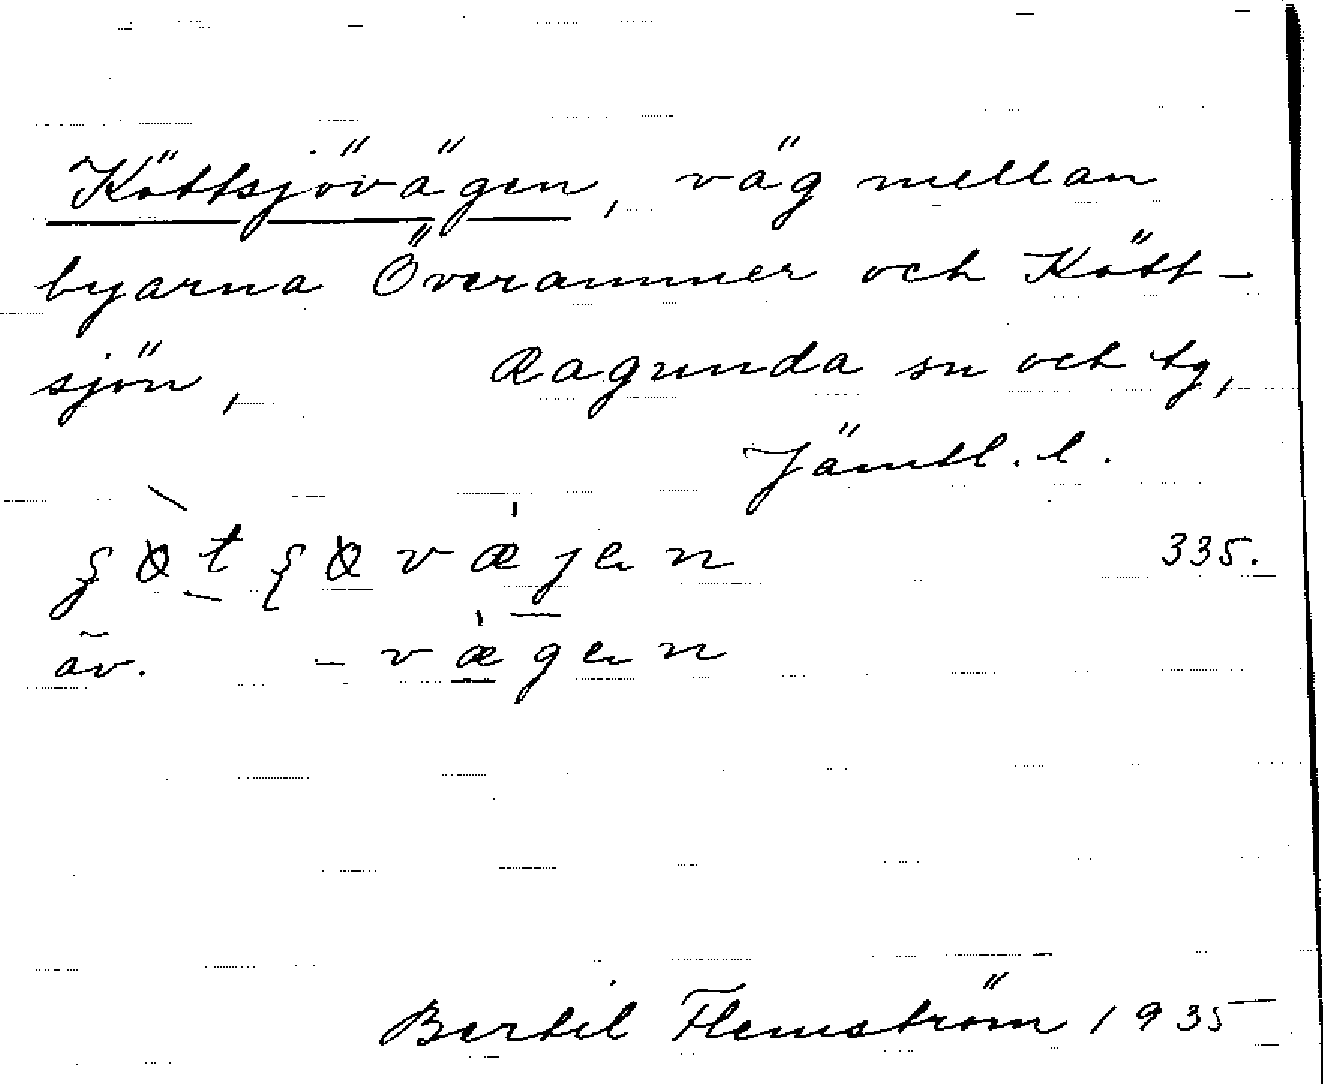 Köttsjövägen, väg mellan
byarna Överammer och Kött-
sjön, Ragunda sn och tg,
Jämtl. l.
335.
äv. - vægen
Bertil Flemström 1935